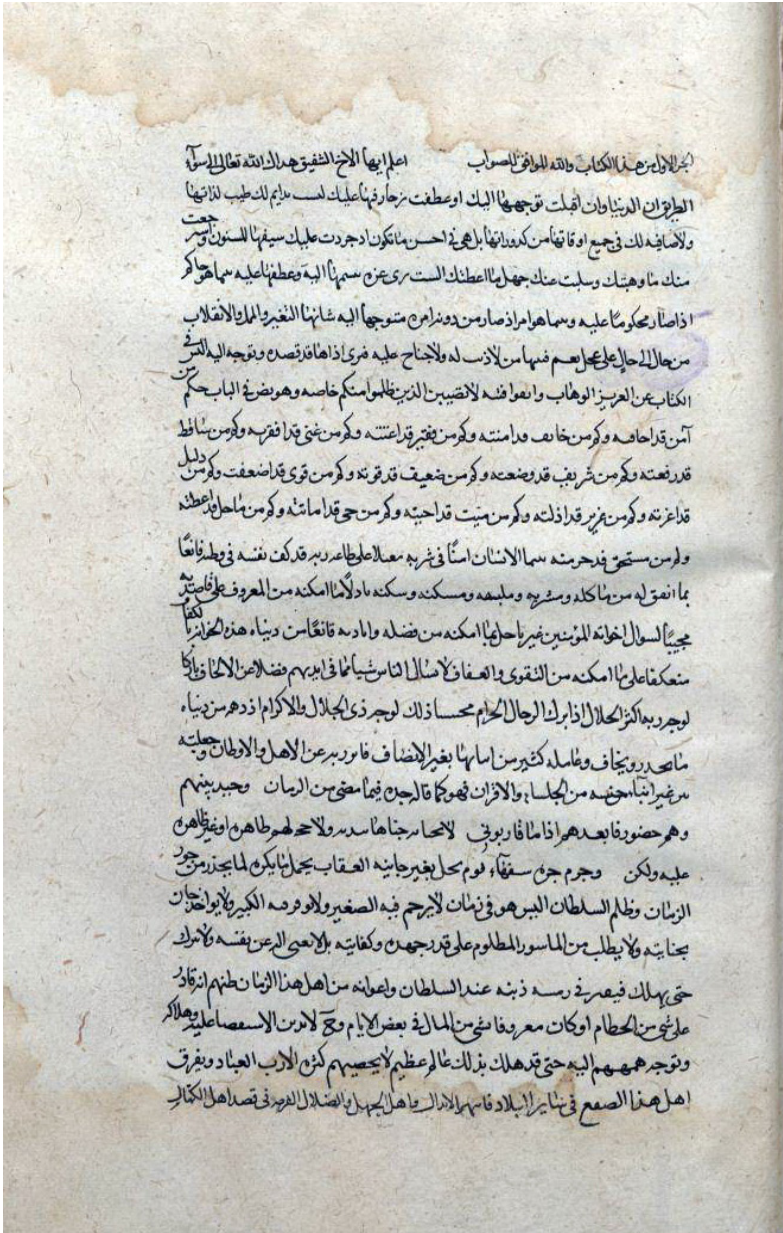 الجزء الاول من هذا الكتاب والله الموافق للصواب اعلم ايها الاخ الشفيق هداك الله تعالى الى سوآء
الطريق ان الدنيا وان اقبلت توجهها اليك او عطفت عليك ليست بدايم لك طيب لذاتها
ولا صافيه لك في جميع اوقاتها من كدوراتها بل هي في احسن ما تكون اذ جردت عليك سيفها المسنون واسترجعت
منك ما وهبتك وسلبت عنك جهل ما اعطتك الست ترى عزه سمها اليه وعطفها عليه سما هو حاكم
اذا صار محكوما عليه وسما هو امر اذ صار من دونه امره متوجها اليه شانها التغير والملل والانقلاب
من حال الى حال على عجل نعم فيها من لا ذنب له ولا جناح عليه فترى اذاها قد قصده وتوجه اليه اليس في
الكتاب عن العزيز الوهاب واتقوا فتنه لا تصيبن الذين ظلموا منكم خاصه وهو نص في الباب فكم من
آمن قد اخافته وكم من خايف قد امنته وكم من فقير قد اغنته وكم من غني قد افقرته وكم من ساقط
قد رفعته وكم من شريف قد وضعته وكم من ضعيف قد قوته وكم من قوي قد اضعفت وكم من ذليل
قد اعزته وكم من عزيز قد اذلته وكم من ميت قد احيته وكم من حي قد اماتته وكم من ماحل قد اعطته
وكم من مستحق قد حرمته سما الانسان امنًا في سربه مقبلا على طاعه ربه قد كف نفسه في وطنه قانعًا
بما اتفق له من ماكله ومشربه وملبسه ومسكنه وسكنه باذلًا ما امكنه من المعروف على قاصديه
مجيبًا لسوال اخوانه المؤمنين غير باخل بما امكنه من فضله واياديه قانعًا من دنياه هذه
منعكفا على ما امكنه من التقوى والعفاف لا يسال الناس شيا مما في ايديهم فضلا عن الالحاف تاركا
لوجه ربه اكثر الحلال اذا ترك الرجال الحرام محتسبا ذلك لوجه ذي الجلال والاكرام اذ دهمه من دنياه
ما يحذر ويخاف وعامله كثير من ابنايها بغير الانصاف فابرزته عن الاهل والاوطان وجعلته
من غير جنسه من الجلساء والاقران فهو كما قال جده فيما مضى من الزمان وحيد بينهم
وهم حضور فابعدهم اذا ما قاربوني لا لجنايه جناها ولا حجه لهم ظاهره او غير ظاهره
عليه ولكن وجرم جره سفهاء قوم يحل بغير جانيه العقاب يحمل ما يكره لما يحذر من جور
الزمان وظلم السلطان اليس هو في زمان لا يرحم فيه الصغير ولا يوقر فيه الكبير ولا يواخذ جان
بجنايته ولا يطلب من الماسور المظلوم على قدر جهده وكفايته بل لا يغني الذب عن نفسه ولا يترك
حتى يهلك فيصير في رمسه ذنبه عند السلطان واعوانه من اهل هذا الزمان ظنهم انه قادر
على شي من الحطام او كان معروفا بشي من المال في بعض الايام وح لا بد من الاستقصا عليه وهلاكه
وتوجه هممهم اليه حتى قد هلك بذلك عالم عظيم لا يحصيهم كثره الا رب العباد وتفرق
اهل هذا الصقع في ساير البلاد فانتهز الانذال واهل الجهل والضلال الفرصه في قصد اهل الكمال